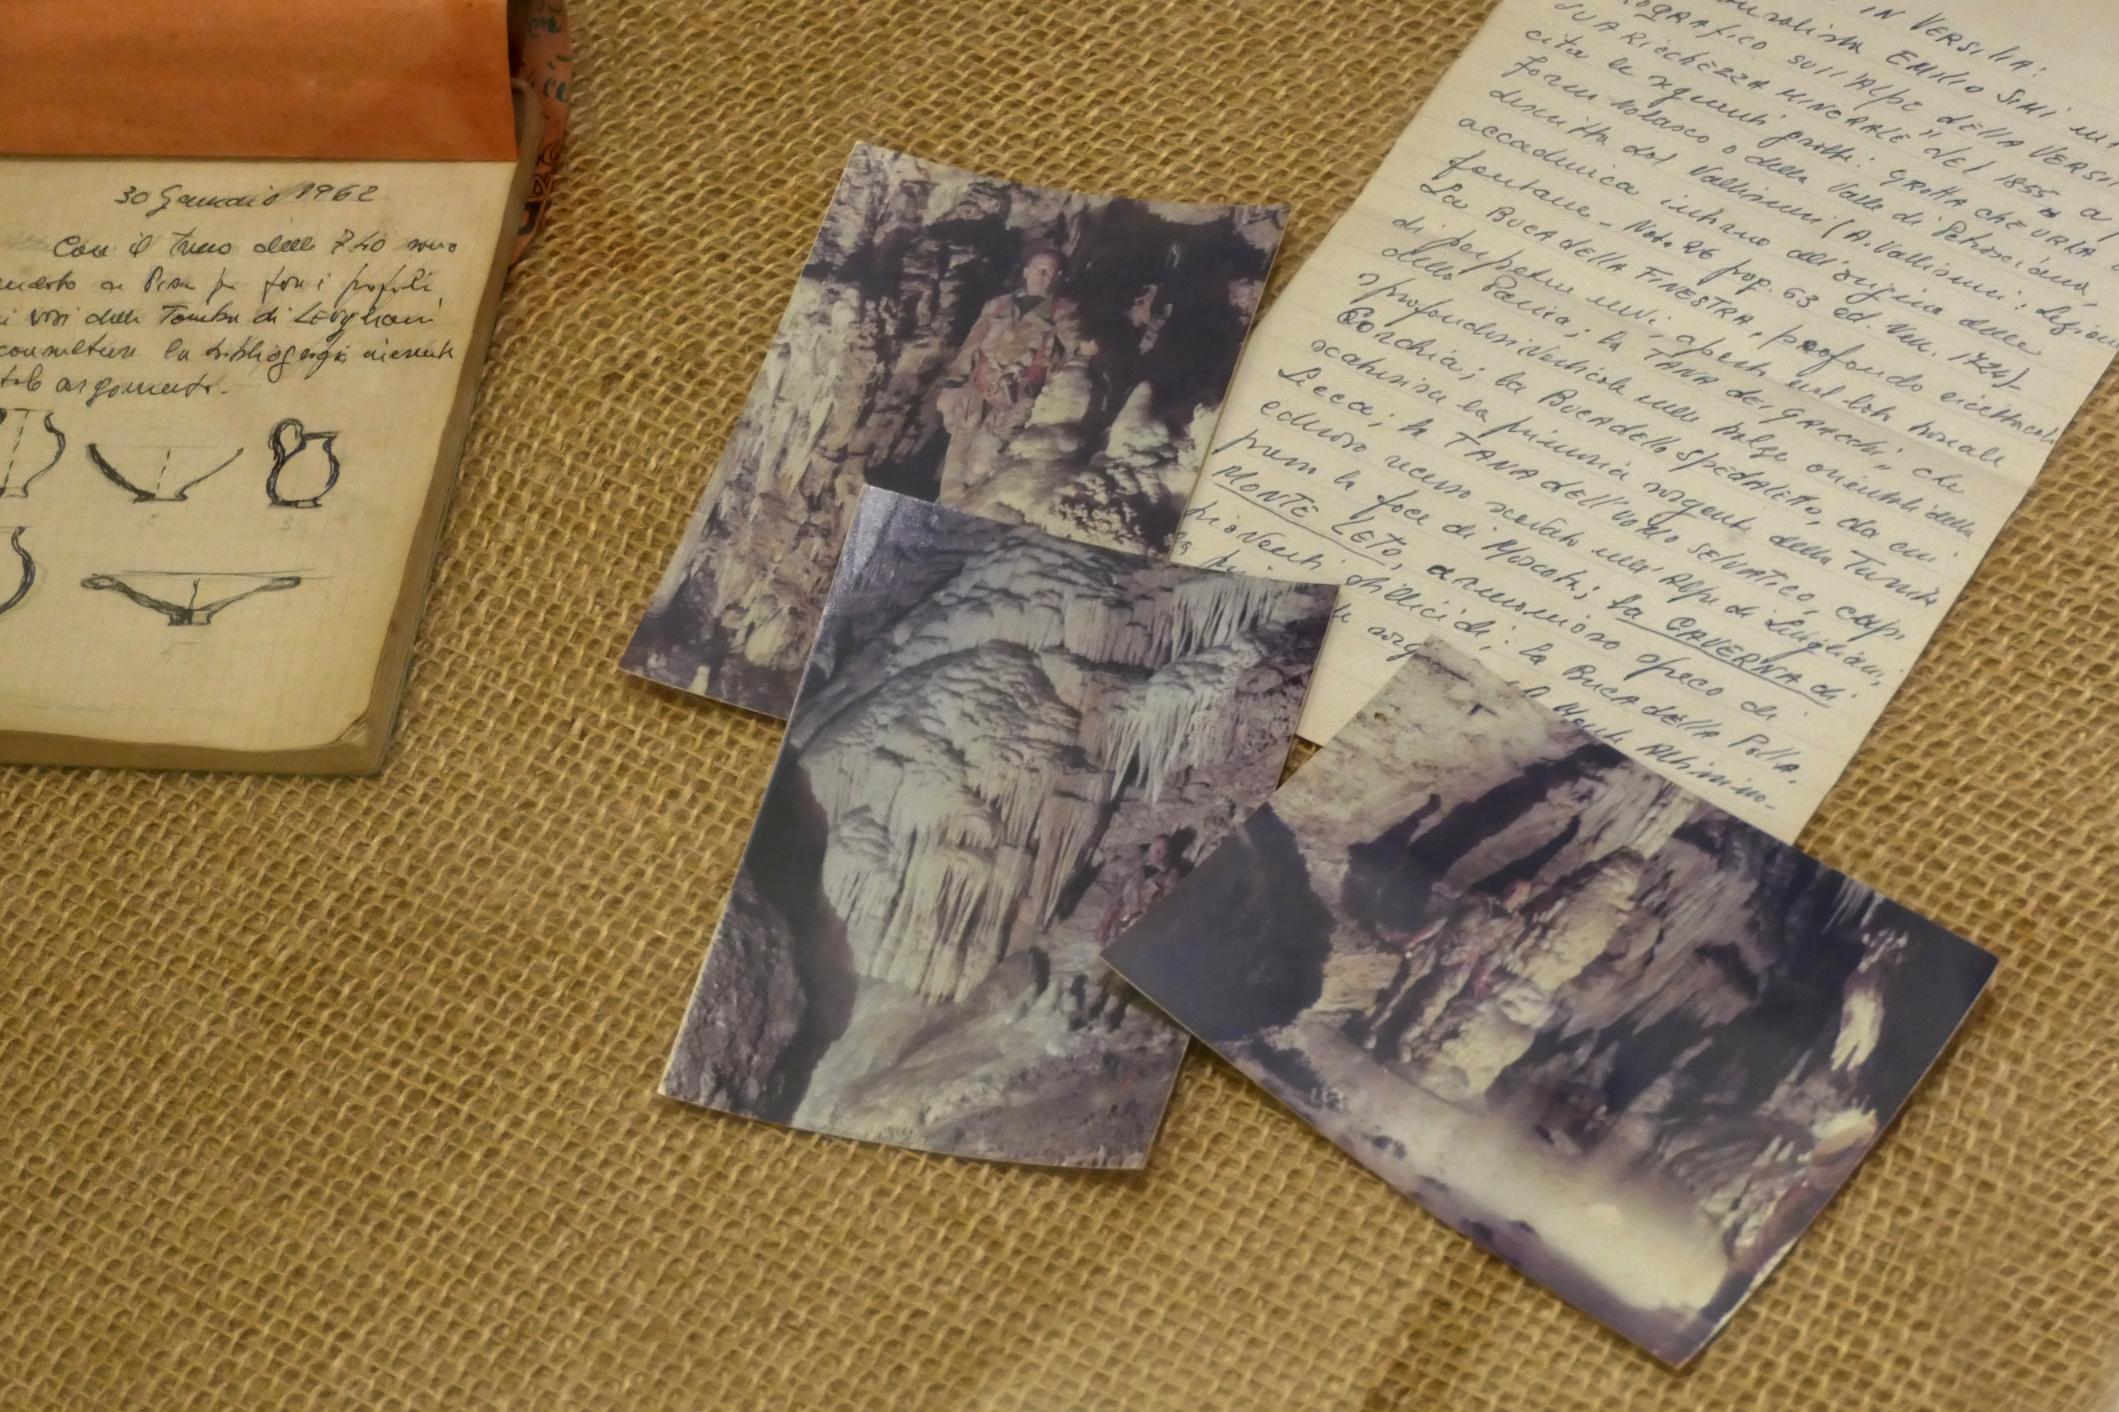 30 Gennaio 1962
Con il treno delle 7.40 sono
andato a Pisa per fare i profili
i vasi della Tomba di Levigliani
consultare la bibliografia
argomento.
2
3
5
IN VERSILIA:
EMILIO SIMI
SULL'ALPE DELLA VERSI
SUA RICCHEZZA MINERALE" del 1855
cita le seguenti grotte: GROTTA CHE URLA
forno Volasco o della Valle di Petrosciana,
descritta dal Vallisnieri (A. Vallisnieri: Lezione
accademica intorno all'origine delle
fontane - Nota 26 pag. 63 ed. Ven. 1726)
La BUCA DELLA FINESTRA, profondo ricettacolo
di perpetue nevi, aperto sul lato boreale
della Pania; la TANA dei GRACCHI, che
sprofondasi verticale nelle balze orientali della
Corchia; la BUCA dello SPEDALETTO, da cui
scaturisce la primaria sorgente della Turrite
Secca; la TANA DELL'UOMO SELVATICO, cupo
recesso scavato nell'Alpe di Levigliani,
presso la foce di Mosceta; la CAVERNA di
MONTE LETO, armonioso speco di
stillicidi; la BUCA della Polla,
Altissimo-